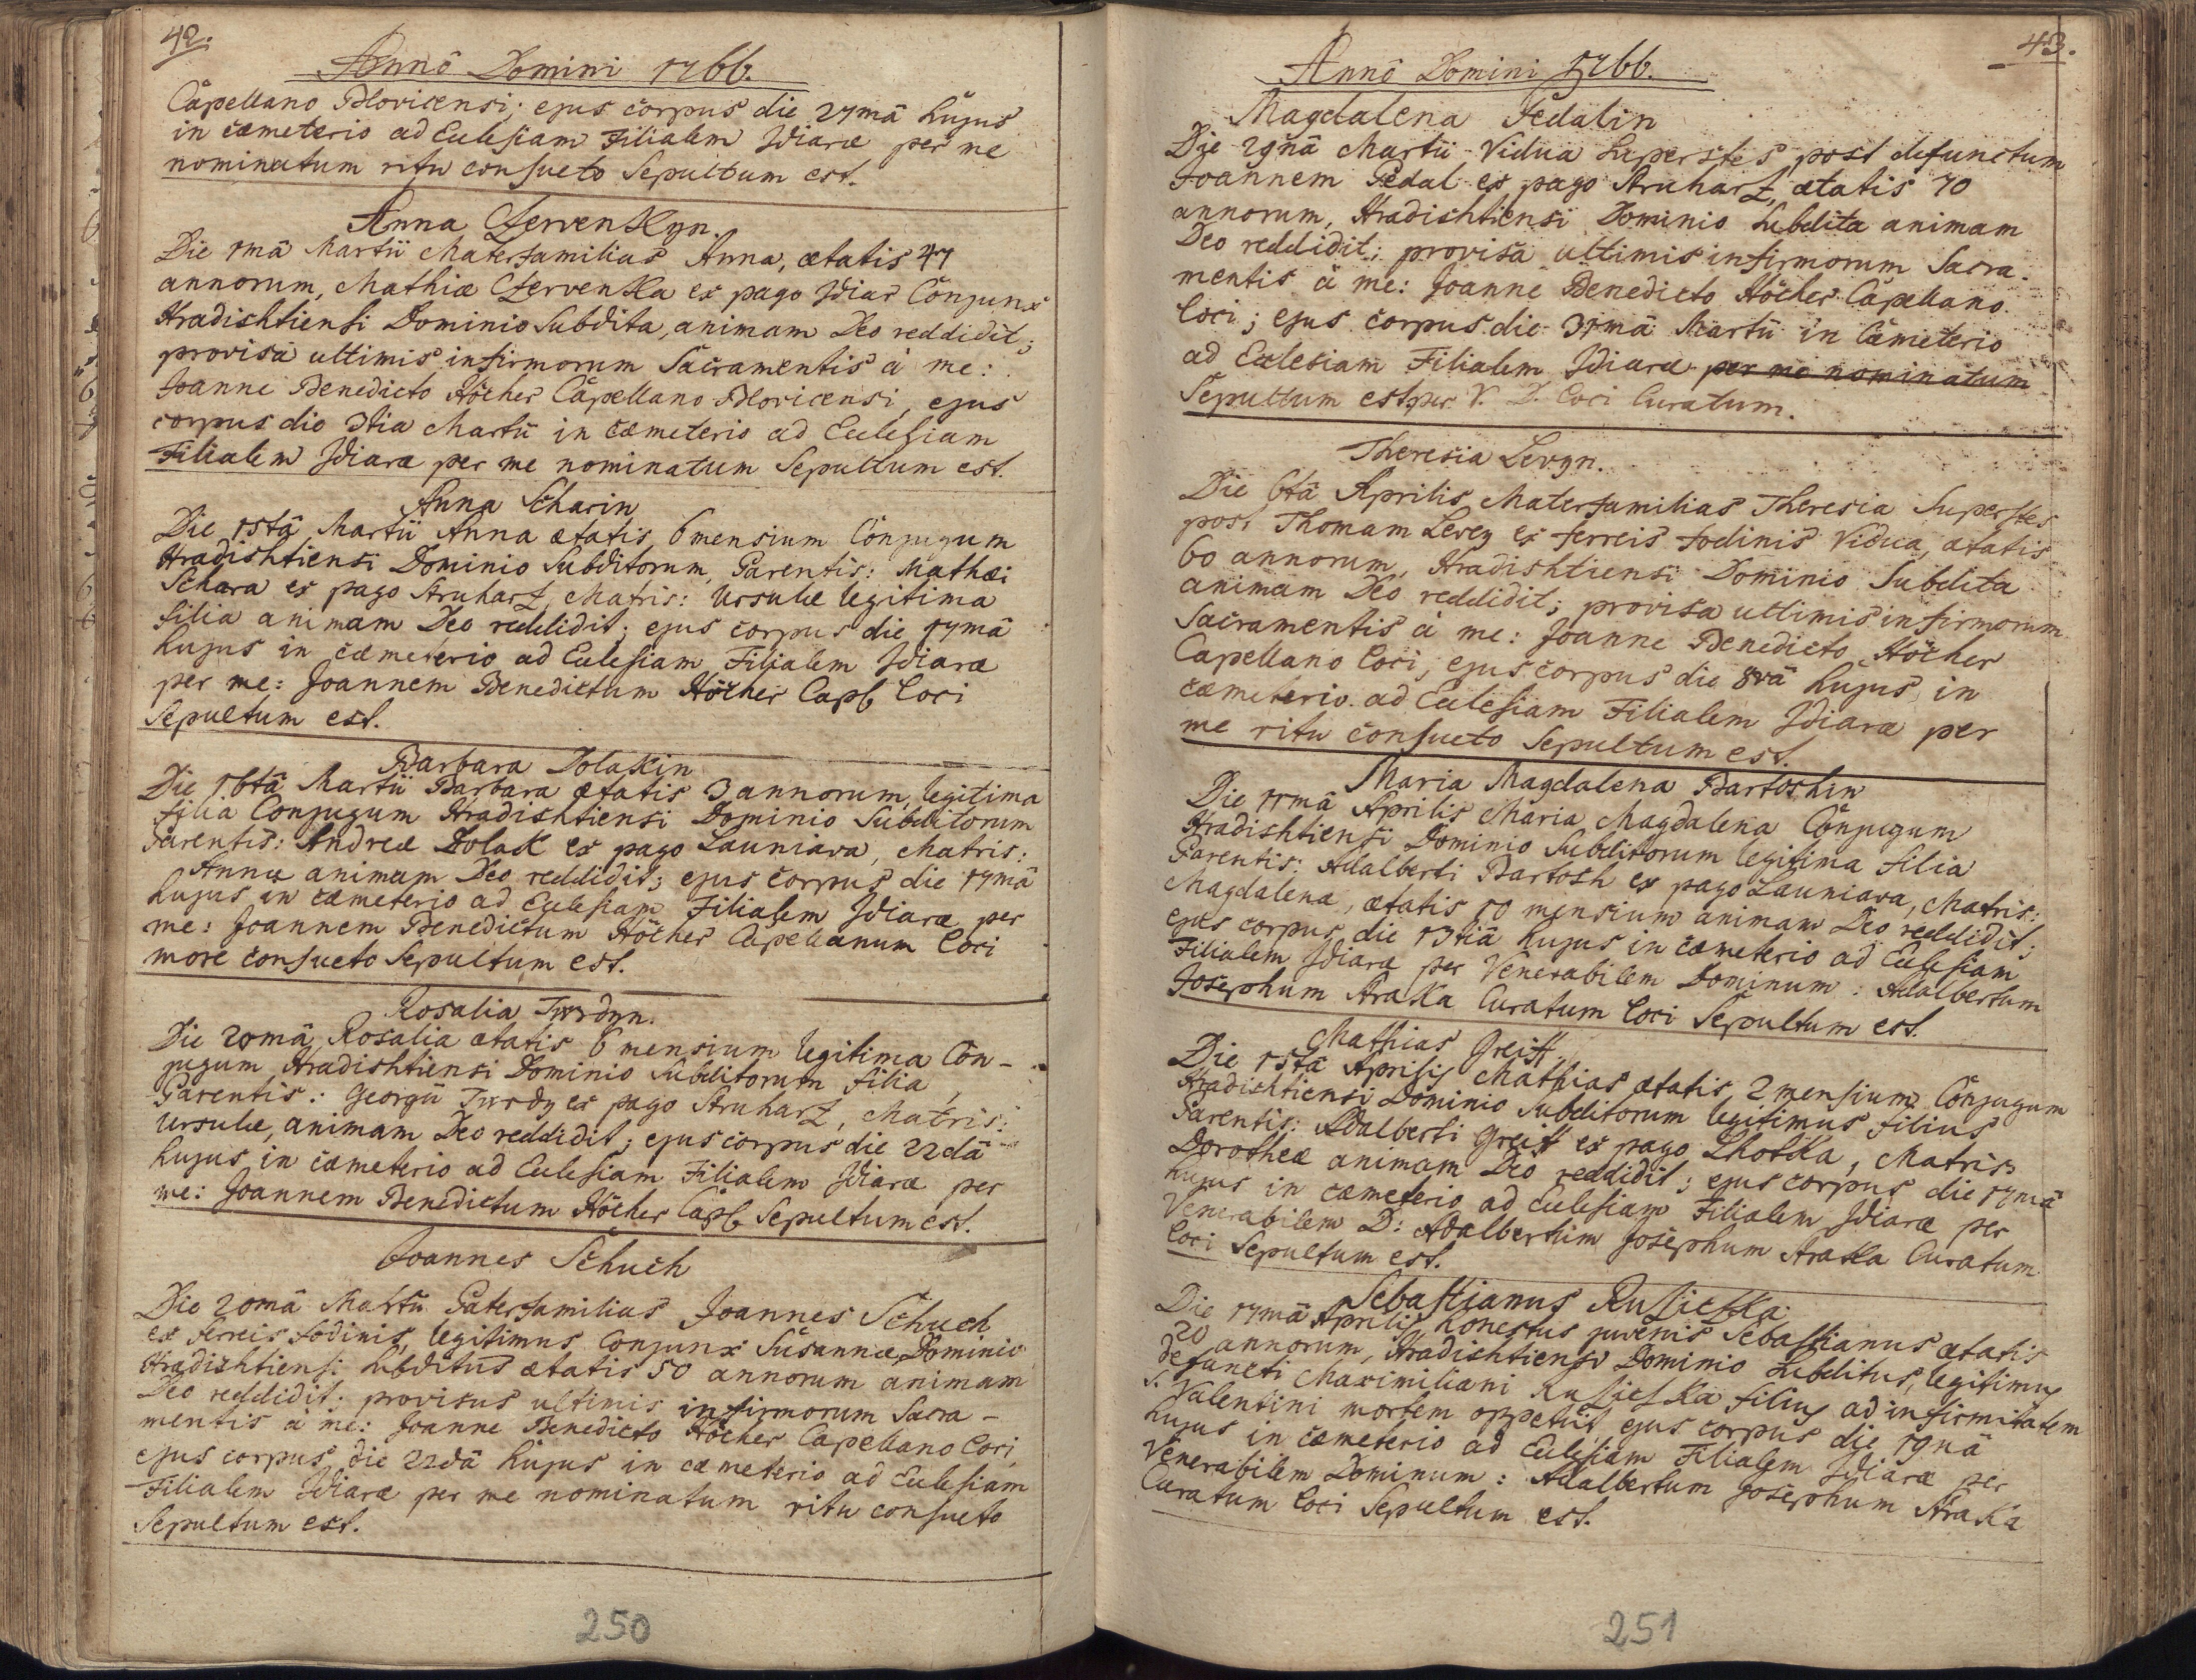 42.
Annô Domini 1766.
Capellano Plovicensi; ejus corpus die 27mâ hujus
in cæmeterio ad Eulesiam Filialem Wiaræ per me
nominatum ritu consueto Sepultum est.
Anna Czervenkyn.
Die 1mâ Martii Materfamilias Anna, ætatis 47
annorum, Mathiæ Czervenka ex pago Wiar Conjunx
Hradishtiensi Dominio Subdita, animam Deo reddidit;
provisa ultimis infirmorum Sacramentis à me:
Joanne Benedicto Höcher Capellano Plovicensi, ejus
corpus die 3tia Martii in cæmeterio ad Eulesiam
Filialem Wiaræ per me nominatum Sepultum est.
Anna Scharin
Die 15tâ Martii Anna ætatis 6 mensium Conjugum
Hradishtiensi Dominio Subditorum, Parentis: Mathæi
Schara ex pago Struharz, Matris: Ursulæ legitima
filia animam Deo reddidit; ejus corpus die 17mâ
hujus in cæmeterio ad Eulesiam Filialem Wiaræ
per me: Joannem Benedictum Höcher Capl Loci
Sepultum est.
Barbara Dolakin
Die 16tâ Martii Barbara ætatis 3 annorum, legitima
filia Conjugum Hradishtiensi Dominio Subditorum
Parentis: Andreæ Dolak ex pago Launiava, Matris:
Annæ animam Deo reddidit; ejus corpus die 17mâ
hujus in cæmeterio ad Eulesiam Filialem Wiaræ per
me: Joannem Benedictum Höcher Capellanum Loci
more consueto Sepultum est.
Rosalia Twrdyn.
Die 20mâ Rosalia ætatis 6 mensium legitima Con-
jugum Hradishtiensi Dominio Subditorum filia,
Parentis: Georgii Twrdy ex pago Struharz, Matris:
Ursulæ, animam Deo reddidit; ejus corpus die 22dâ
hujus in cæmeterio ad Eulesiam Filialem Wiaræ per
me: Joannem Benedictum Höcher Capl Sepultum est.
Joannes Schuch
Die 20mâ Martii Paterfamilias Joannes Schuch
ex ferreis fodinis, legitimus Conjunx Susannæ, Dominio
Hradishtiensi subditus ætatis 50 annorum animam
Deo reddidit; provisus ultimis infirmorum Sacra-
mentis à me: Joanne Benedicto Höcher Capellano Loci,
ejus corpus die 22dâ hujus in cæmeterio ad Eulesiam
Filialem Wiaræ per me nominatum ritu consueto
Sepultum est.
250
43.
Annô Domini 1766.
Magdalena Pedalin
Die 29nâ Martii Vidua superstes post defunctum
Joannem Pedal ex pago Struharz, ætatis 70
annorum, Hradishtiensi Dominio Subdita animam
Deo reddidit; provisa ultimis infirmorum Sacra-
mentis à me: Joanne Benedicto Höcher Capellano
Loci; ejus corpus die 31mâ Martii in Cæmeterio
ad Eulesiam Filialem Wiaræ per me nominatum
Sepultum est per V. D. Loci Curatum.
Theresia Levyn.
Die 6tâ Aprilis Materfamilias Theresia Superstes
post Thomam Levey ex ferreis fodinis Vidua, ætatis
60 annorum, Hradishtiensi Dominio Subdita
animam Deo reddidit; provisa ultimis infirmorum
Sacramentis à me: Joanne Benedicto Höcher
Capellano Loci, ejus corpus die 8vâ hujus in
cæmeterio ad Eulesiam Filialem Wiaræ per
me ritu consueto Sepultum est.
Maria Magdalena Bartoshin
Die 11mâ Aprilis Maria Magdalena Conjugum
Hradishtiensi Dominio Subditorum legitima filia
Parentis: Adalberti Bartosh ex pago Launiava, Matris:
Magdalenæ, ætatis 10 mensium animam Deo reddidit;
ejus corpus die 13tiâ hujus in cæmeterio ad Eulesiam
Filialem Wiaræ per Venerabilem Dominum: Adalbertum
Josephum Straka Curatum Loci Sepultum est.
Mathias Greiff.
Die 15tâ Aprilis Mathias ætatis 2 mensium Conjugum
Hradishtiensi Dominio Subditorum legitimus filius
Parentis: Adalberti Greiff ex pago Lhotka, Matris
Dorotheæ animam Deo reddidit; ejus corpus die 17mâ
hujus in cæmeterio ad Eulesiam Filialem Wiaræ per
Venerabilem D: Adalbertum Josephum Straka Curatum
Loci Sepultum est.
Sebastianus Rusizka
Die 17mâ Aprilis honestus juvenis Sebastianus ætatis
20 annorum, Hradishtiensi Dominio Subditus, legitimus
defuncti Maximiliani Rusizka filius ad infirmitatem
S. Valentini mortem oppetiit, ejus corpus die 19nâ
hujus in cæmeterio ad Eulesiam Filialem Wiaræ per
Venerabilem Dominum: Adalbertum Josephum Straka
Curatum Loci Sepultum est.
251